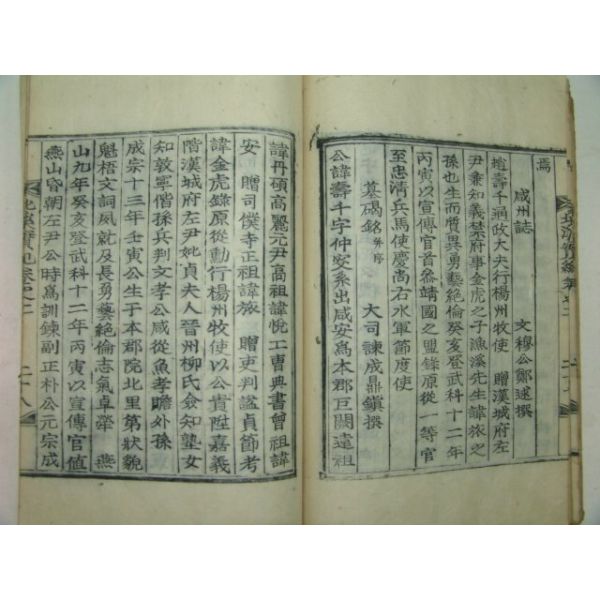 焉
咸州誌　文穆公鄭逑撰
趙壽千通政大夫行楊州牧使　贈漢城府左
尹兼知義禁府事金虎之子漁溪先生諱旅之
孫也生而質異勇藝絶倫癸亥登武科十二年
丙寅以宣傳官首參靖國之盟錄原從一等官
至忠清兵馬使慶尚右水軍節度使
墓碣銘并序　大司諫成鼎鎭撰
公諱壽千字仲安系出咸安爲本郡巨閥遠祖
諱丹碩高麗元尹高祖諱悅工曹典書曾祖諱
安　贈司僕寺正祖諱旅　贈吏判謚貞節考
諱金虎錄原從勳行楊州牧使以公貴陞嘉義
階漢城府左尹妣貞夫人晉州柳氏僉知塾女
知敦寧偕孫兵判文孝公咸從魚孝瞻外孫
成宗十三年壬寅公生于本郡院北里第狀貌
魁梧文詞夙就及長勇藝絶倫志氣卓犖　燕
山九年癸亥登武科十二年丙寅以宣傳官値
燕山昏朝左尹公時爲訓鍊副正朴公元宗成